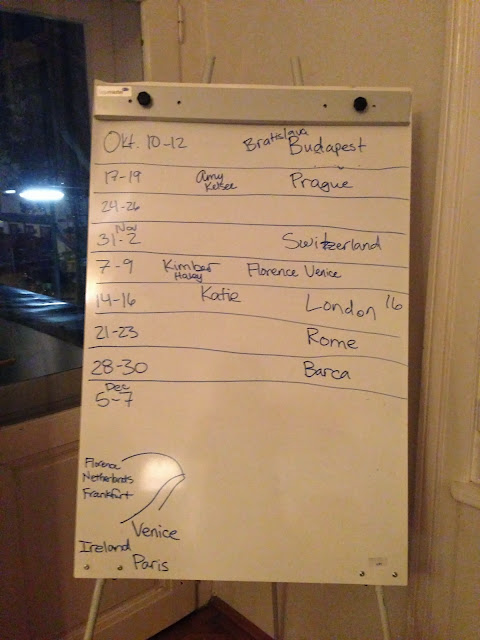 Okt. 10-12 Bratislava Budapest
17-19 Amy Kelsee Prague
24-26
Nov
31-2 Switzerland
7-9 Kimber Haley Florence Venice
14-16 Katie London 16
21-23 Rome
28-30 Barca
Dec
5-7
Florence
Frankfurt
Venice
Ireland
Paris